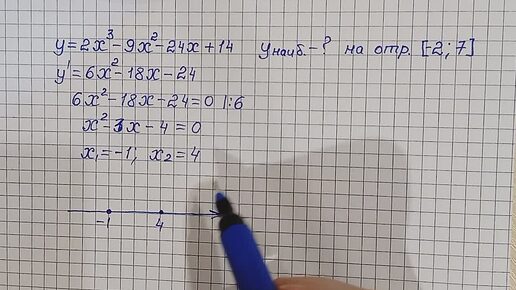 y=2x³-9x²-24x+14 yнаиб.-? на отр. [-2;7]
y'=6x²-18x-24
6x²-18x-24=0 |:6
x²-3x-4=0
x₁=-1; x₂=4
-1 4